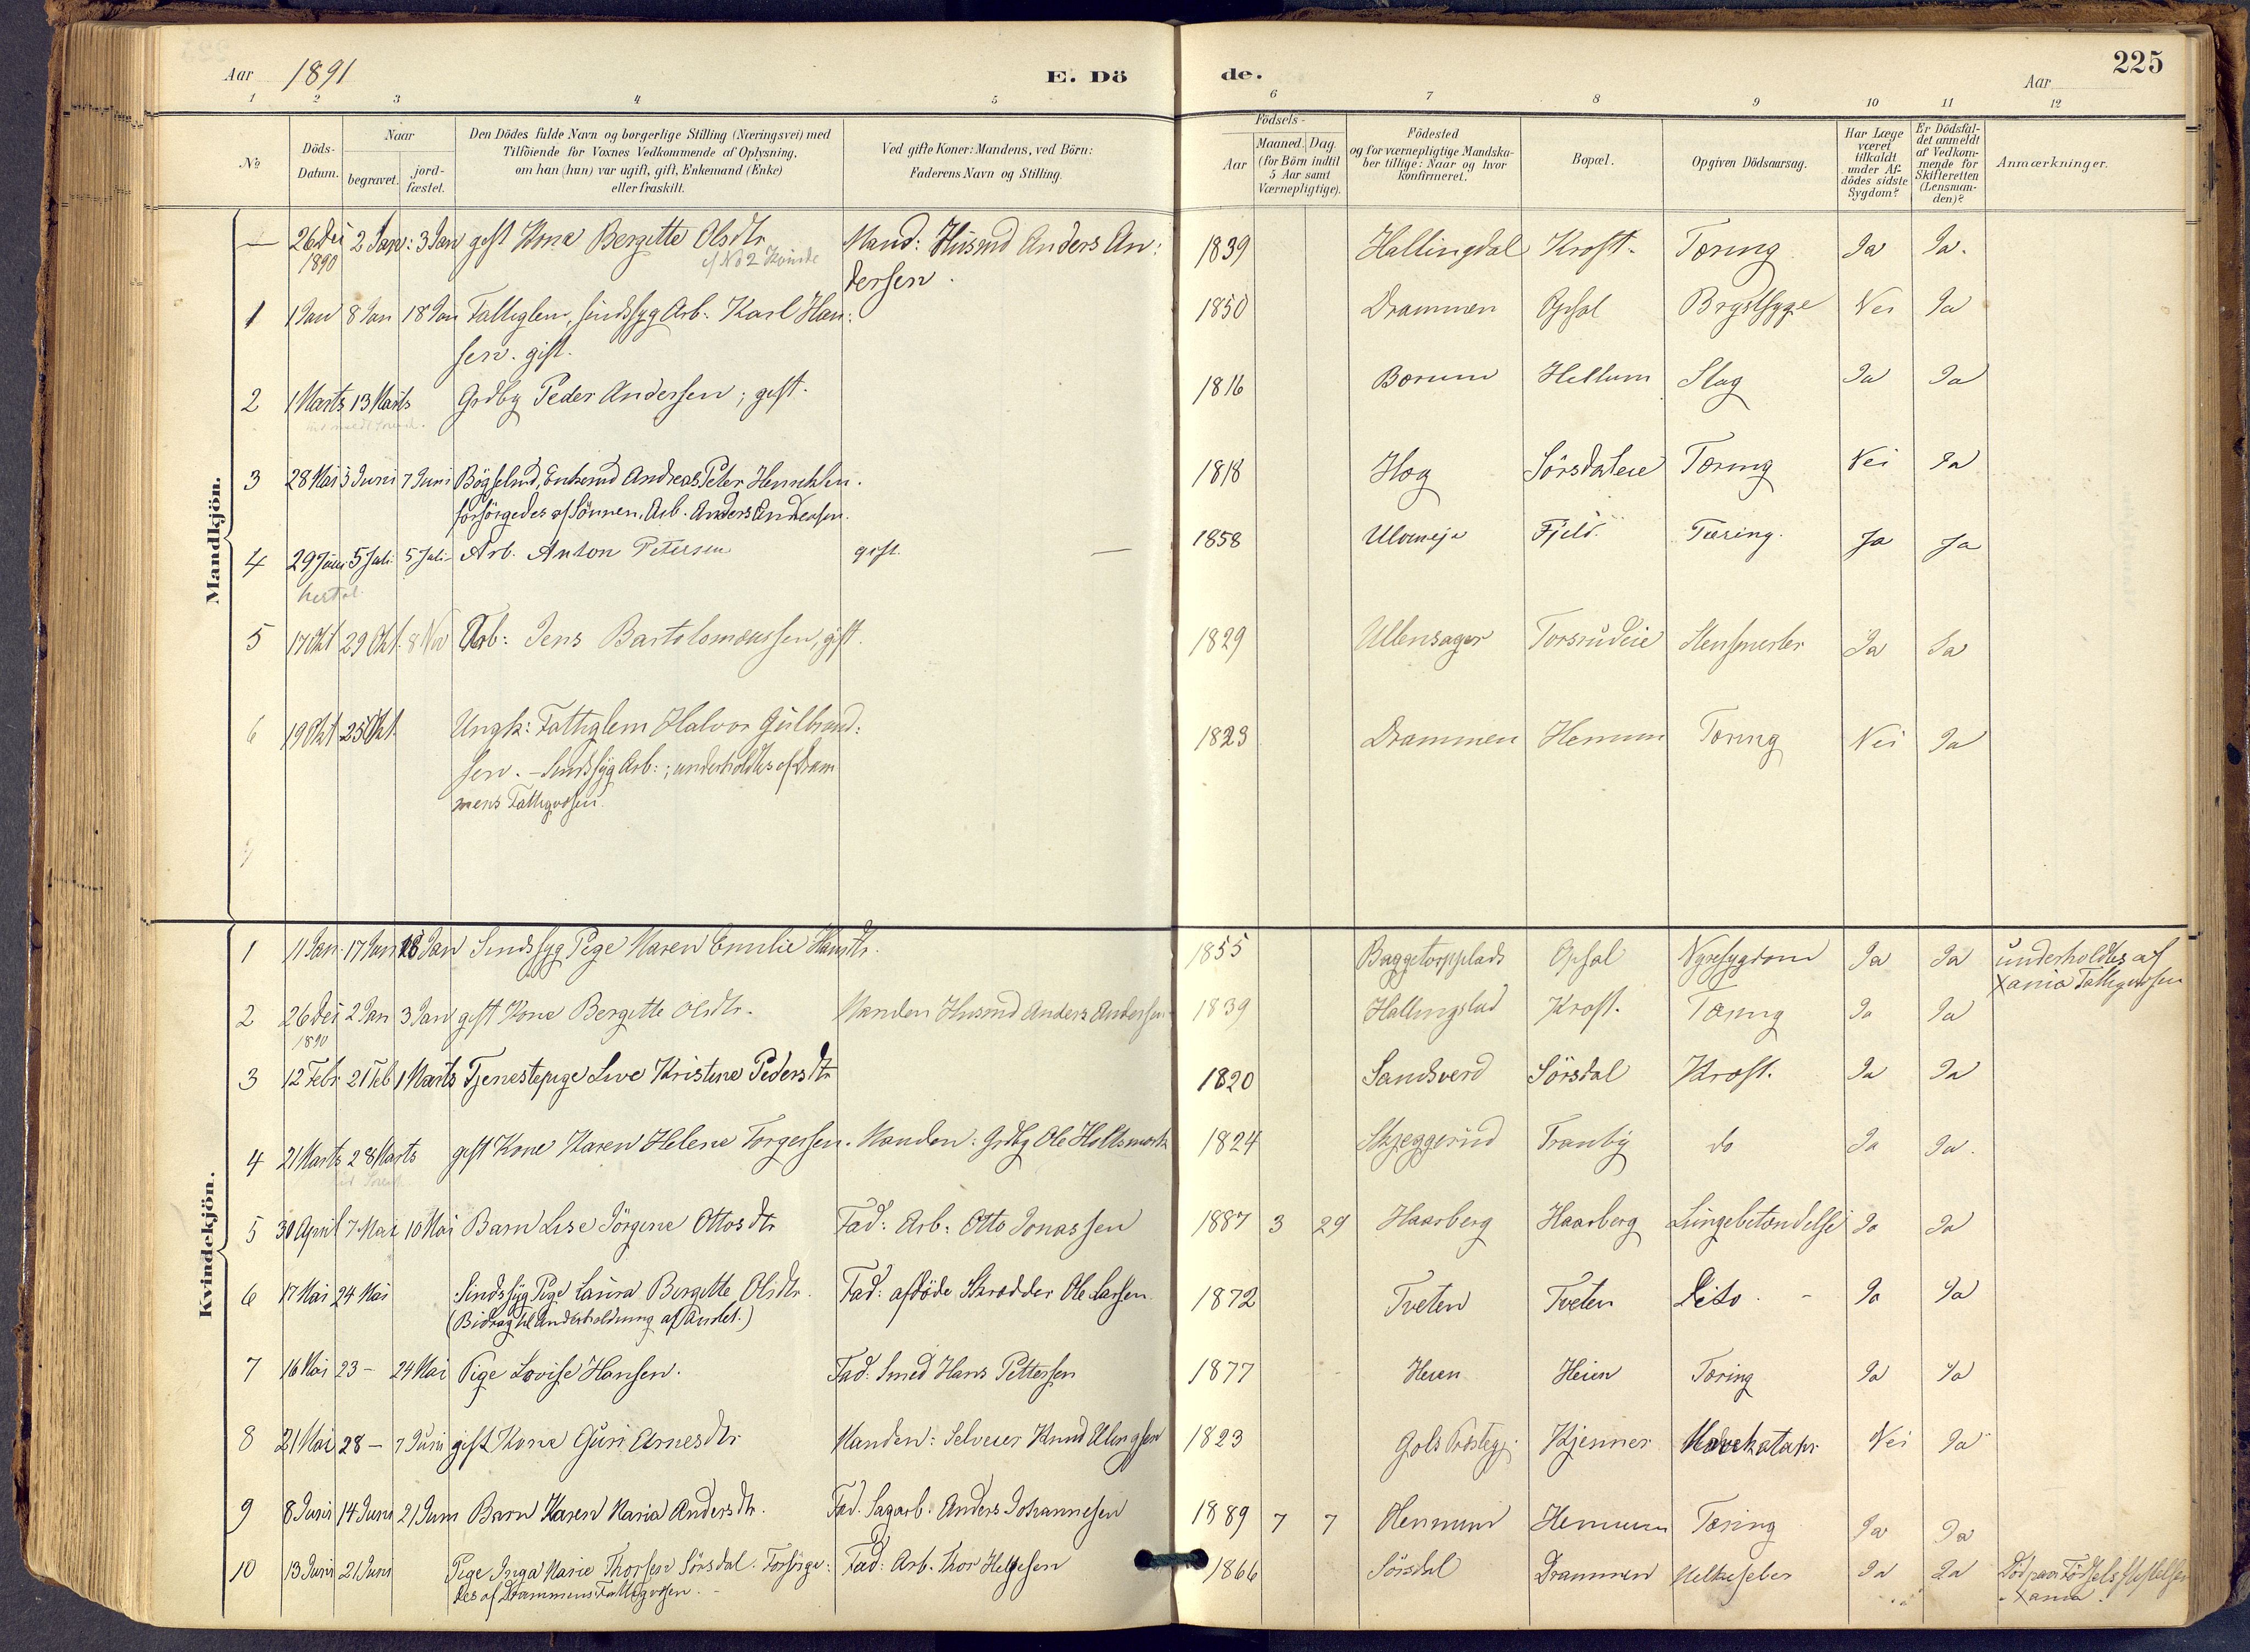 Aar 1891 E. Dö de. Aar 225
1 2 3 4 5 6 7 8 9 10 11 12
No
Döds-Datum.
Naar
begravet.
jord-fæstet.
Den Dödes fulde Navn og borgerlige Stilling (Næringsvei) med
Tilföiende for Voxnes Vedkommende af Oplysning,
om han (hun) var ugift, gift, Enkemand (Enke)
eller fraskilt.
Ved gifte Koner: Mandens, ved Börn:
Faderens Navn og Stilling.
Födsels-
Aar
Maaned. Dag.
(for Börn indtil
5 Aar samt
Værnepligtige).
Födested
og for værnepligtige Mandska-
ber tillige: Naar og hvor
konfirmeret.
Bopæl.
Opgiven Dödsaarsag.
Har Læge
været
tilkaldt
under Af-
dödes sidste
Sygdom?
Er Dödsfal-
det anmeldt
af Vedkom-
mende for
Skifteretten
(Lensman-
den)?
Anmærkninger.
Mandkjön.
— 26 Dei 2 Jan: 3 Jan gift Kone Bergitte Olsdtr Mand: Husmd Anders An: 1839 Hallingdal Kroft. Tæring Ja Ja.
1890 No 2 Kvinde dersen.
1 1 Jan 8 Jan 18 Jan Fattiglem, sindssyg Arb. Karl Han: 1850 Drammen Opsal Brystsyge Nei Ja
sen. gift.
2 1 Marts 13 Marts Grdbr Peder Andersen; gift. 1816 Bærum Hellum Slag Ja Ja
3 28 Mai 3 Juni 7 Juni Enkemd Andreas Peter 1818 Hog Sörsdaleie Tæring Nei Ja
forsörgedes af Sönnen, Arb. Anders Andreasen.
4 29 Juni 5 Juli 5 Juli Arb. Anton Petersen gift. — 1858 Fjeld. Tæring. Ja Ja
5 17 Okt 29 Okt. 8 Nov Arb: Jens Bartolomæussen, gift. 1829 Ullensager Torsrudeie Ja Ja
6 19 Okt 25 Okt. Ungk: Fattiglem Halvor Gulbrand: 1823 Drammen Hennum Tæring Nei Ja
sen. – Sindssyg Arb:; underholdtes af Dram
mens Fattigvæsen.
Kvindekjön.
1 11 Jan. 17 Jan 18 Jan Sindssyg Pige Maren Emilie Hansdtr. 1855 Baggetorpplads Opsal Nyresygdom Ja Ja underholdtes af
Xania Fattigvæsen
2 26 Dei 2 Jan 3 Jan gift Kone Bergitte Olsdtr. Manden Husmd Anders Andersen 1839 Kroft. Tæring Ja Ja
1890
3 12 Febr 21 Feb 1 Marts Tjenestepige Live Kristine Pedersdtr 1820 Sandsverd Sörsdal Kræft. Ja Ja
4 21 Marts 28 Marts gift Kone Karen Helene Torgersen. Manden: Grdbr Ole Holtsmark 1824 Skjeggerud Tranby do Ja Ja.
5 30 April 7 Mai 10 Mai Barn Lise Jörgine Ottosdtr Fad: Arb: Otto Jonassen 1887 3 29 Haarberg Haarberg Lungebetændelse Ja Ja
6 17 Mai 24 Mai Sindssyg Pige Laura Bergitte Olsdtr. Fad: afdöde Skrædder Ole Larsen. 1872 Tveten Tveten Dito. – Ja Ja
(Bidrag til Underholdning af Amtet.)
7 16 Mai 23 – 24 Mai Pige Lovise Hansen. Fad: Smed Hans Pettersen 1877 Heien Heien Tæring Ja Ja
8 21 Mai 28 – 7 Juni gift Kone Guri Arnesdtr Manden: Selveier Knud Ellingsen 1823 Gols Prestegj. Kjenner Nei Ja
9 8 Juni 14 Juni 21 Juni Barn Karen Maria Andersdtr. Fad. Sagarb. Anders Johannesen 1889 7 7 Hennum Hennum Tæring Ja Ja
10 13 Juni 21 Juni Pige Inga Marie Thorsen Sörsdal. Forsörge: Fad: Arb. Thor Helgesen 1866 Sörsdal Drammen Ja Ja Död paa Födselsstiftelsen
des af Drammens Fattigvæsen. – i Xania.